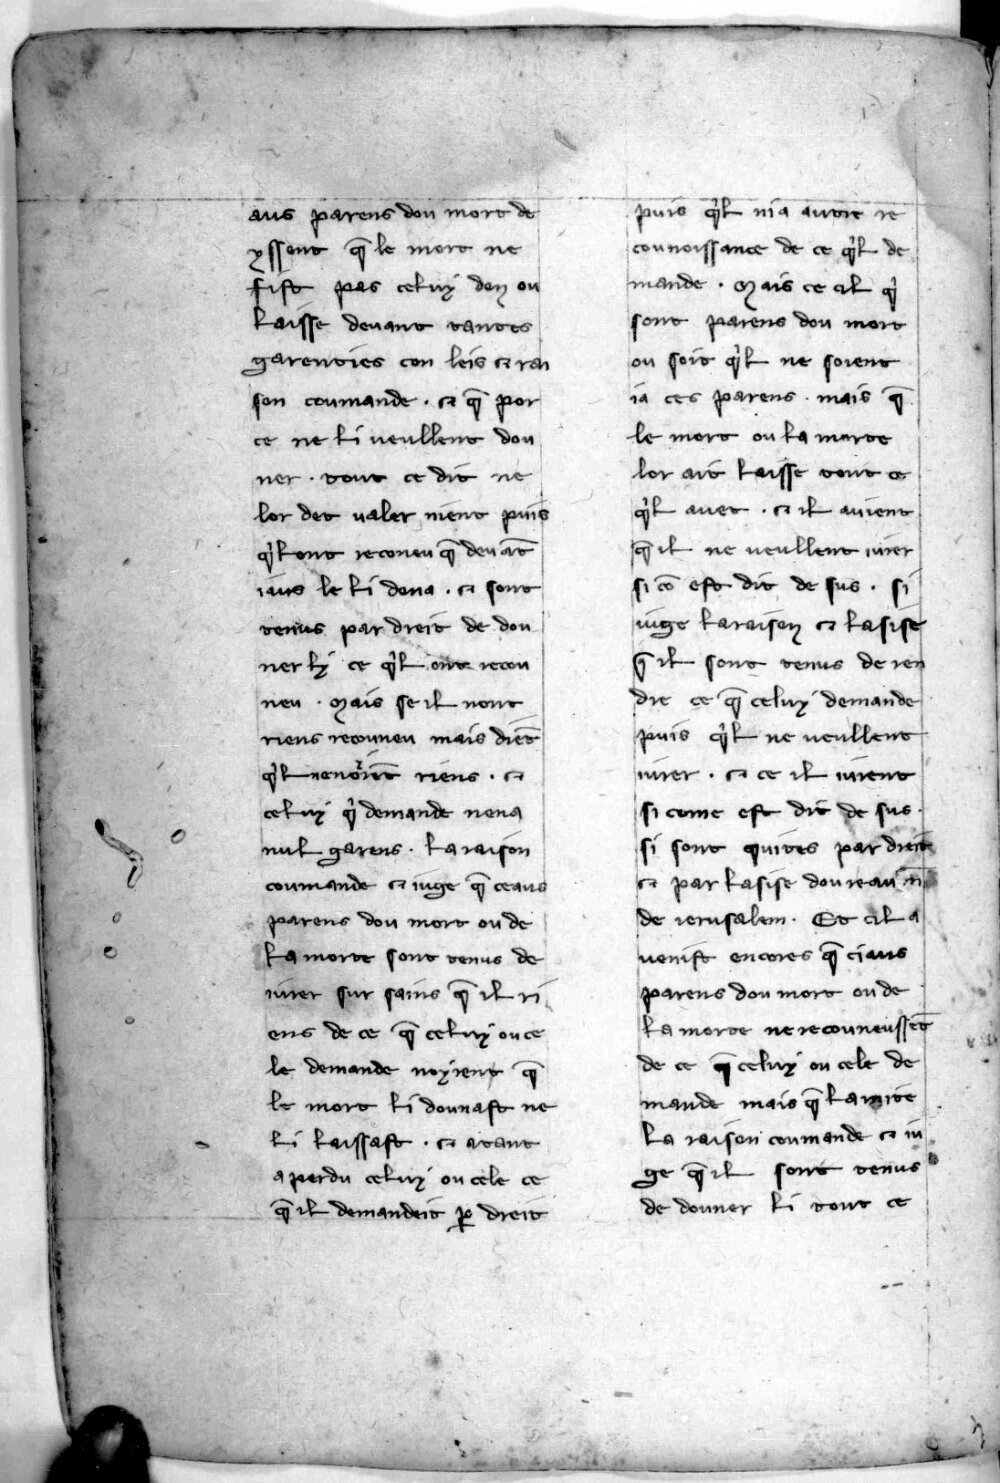 aus parens dou mort de
yssent q̄ le mort ne
fist pas celuy don ou
laisse devant tantes
garenties con leis ⁊ rai
son coumande . ⁊ q̄ por
ce ne li veullent dou
ner . tout ce dit ne
lor det valer nient puis
qⁱl ont reconeu q̄ devāt
iaus le li dona . ⁊ sont
tenus par dreit de dou
ner ly ce qⁱl ont recou
neu . Mais se il nont
riens recouneu mais diēt
qⁱl riens . ⁊
celuy qⁱ demande nena
nul garens . la raison
coumande ⁊ iuge q̄ ceaus
parens dou mort ou de
la morte sont tenus de
iurer sur sains q̄ il ri
ens de ce q̄ celuy ou ce
le demande noyrent q̄
le mort li dounast ne
li laissast . ⁊ atant
a perdu celuy ou cele ce
q̄ il demandeit ꝑ dreit
puis qⁱl nia autre re
counoissance de ce qⁱl de
mande . Mais ce cil qⁱ
sont parens dou mort
ou soit qⁱl ne soient
ia ces parens . mais q̄
le mort ou la morte
lor ait laisse tout ce
qⁱl avet . ⁊ il avient
q̄ il ne veullent iurer
si cō est dit de sus . si
iuge la raison ⁊ lasise
q̄ il sont tenus de ren
dre ce q̄ celuy demande
puis qⁱl ne veullent
iurer . ⁊ ce il iurent
si come est dit de sus .
si sont quites par dreit
⁊ par lasise dou reaum̄
de ierusalem . Et cil a
venist encores q̄ ciaus
parens dou mort ou de
la morte ne recouneussēt
de ce q̄ celuy ou cele de
mande mais q̄ la mite
la raison coumande ⁊ iu
ge q̄ il sont tenus
de douner li tout ce